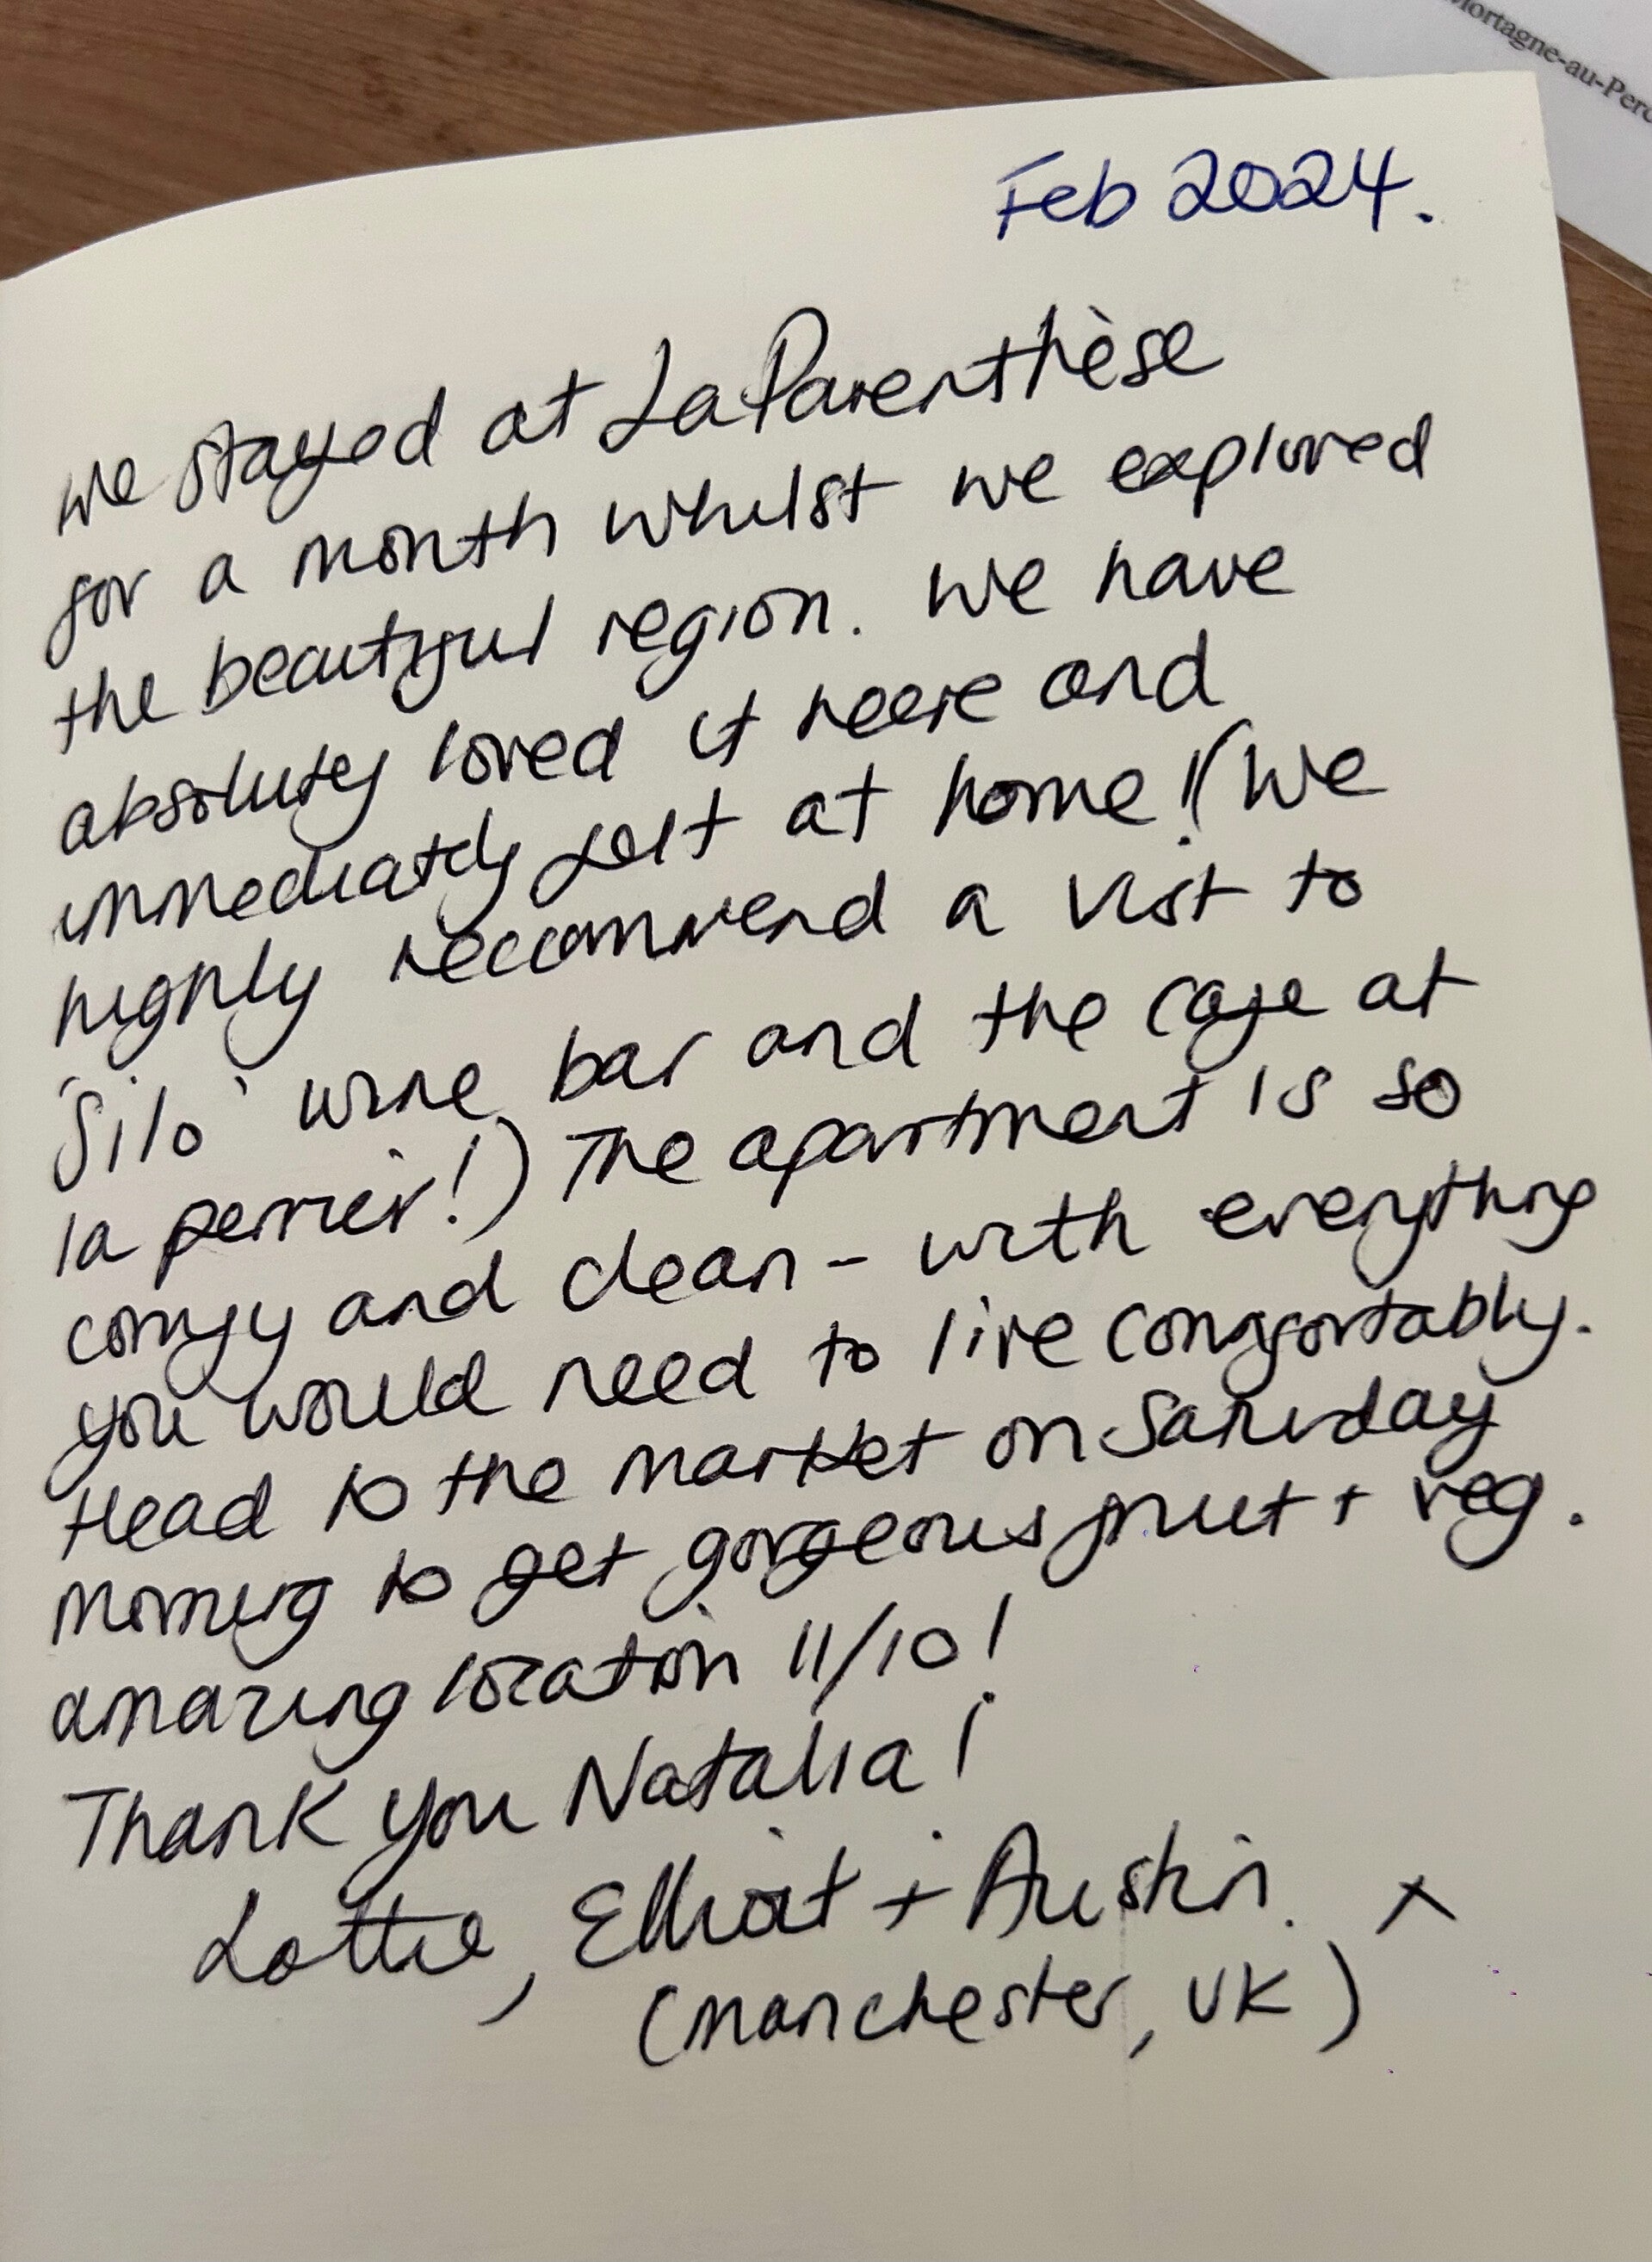 Mortagne-au-Perc
Feb 2024.
We stayed at La Parenthèse
for a month whilst we explored
the beautiful region. We have
absolutely loved it here and
immediately felt at home! (We
highly reccommend a visit to
'Silo' wine bar and the cafe at
la perrier!) The apartment is so
comfy and clean - with everything
you would need to live comfortably.
Head to the market on Saturday
morning to get gorgeous fruit + veg.
amazing location 11/10!
Thank you Natalia!
Lottie, Elliot + Austin. x
(Manchester, UK)